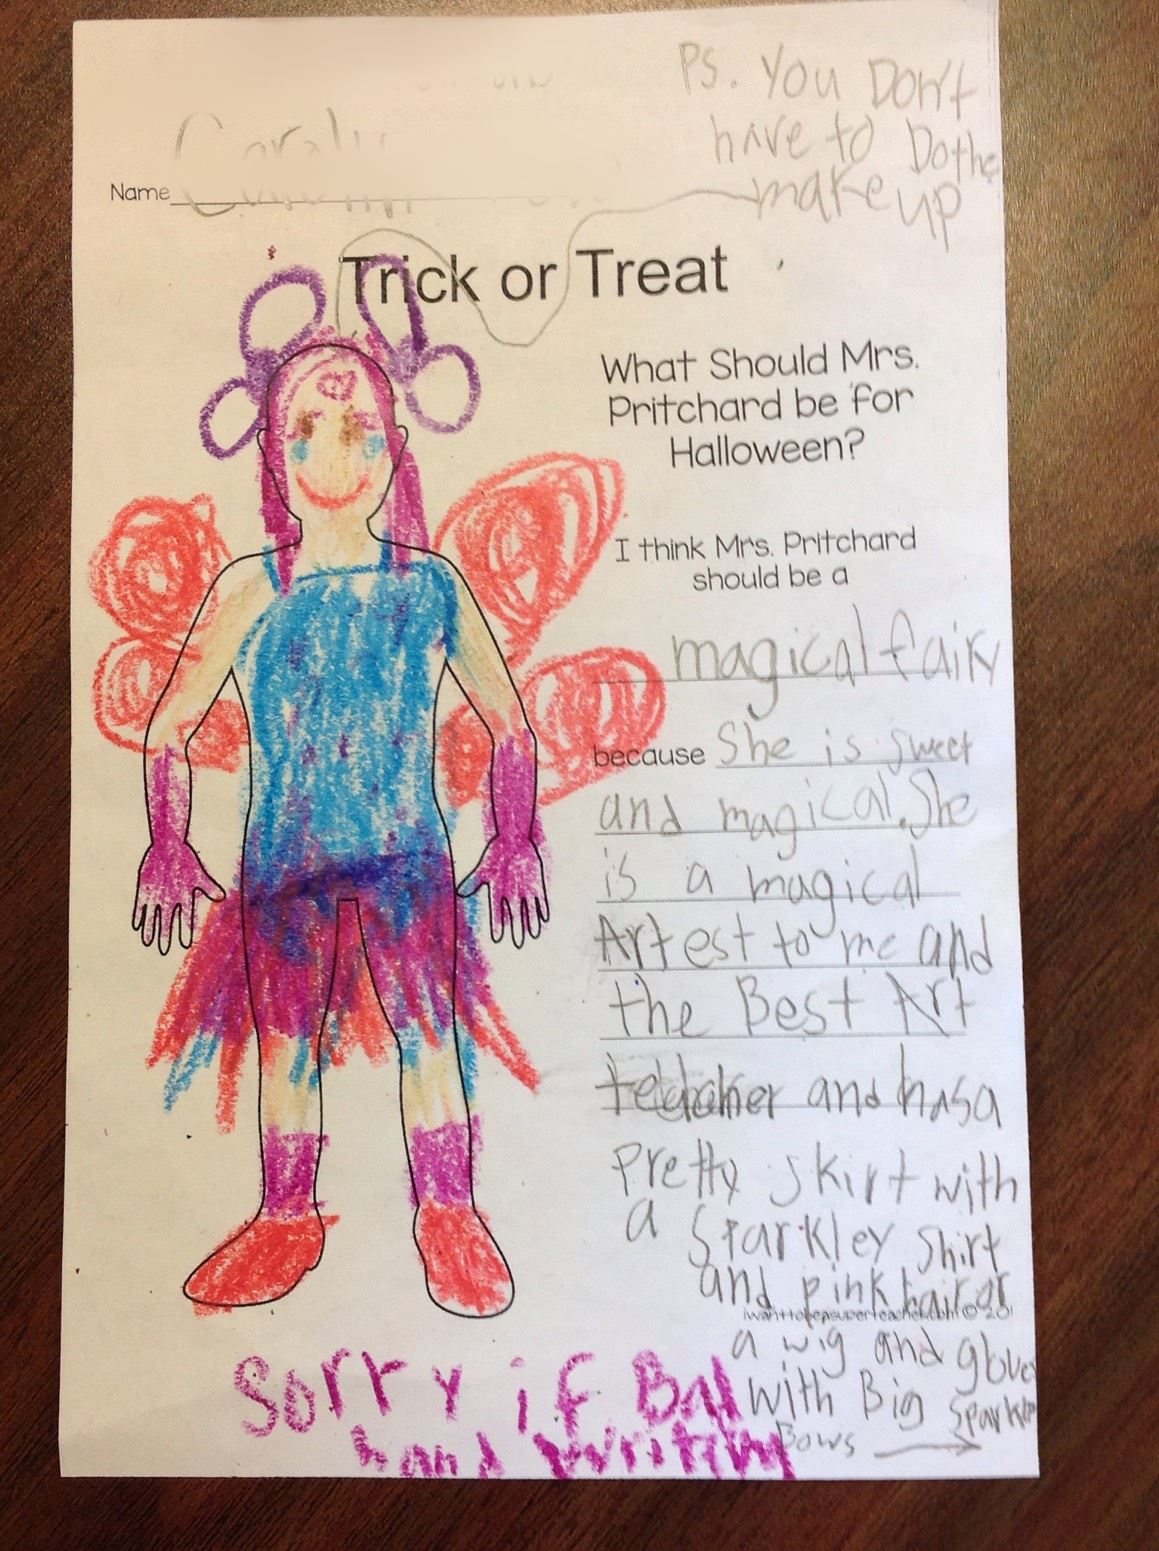 Ps. You Don't
have to Do the
make up
Name
Trick or Treat
What Should Mrs.
Pritchard be for
Halloween?
I think Mrs. Pritchard
should be a
magical fairy
because She is sweet
and magical. She
is a magical
Artest to me and
the Best Art
teacher and has a
Pretty skirt with
a Sparkley shirt
and pink hair or
a wig and glove
with Big Sparkle
Bows
Sorry if Bad
hand Writing